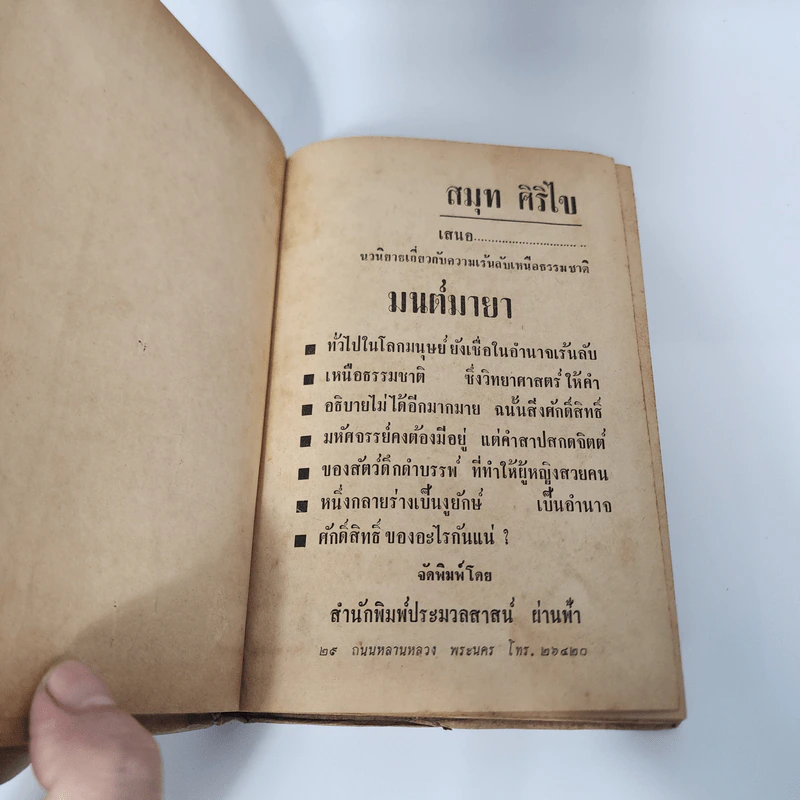 สมุท ศิริไข
เสนอ................................
นวนิยายเกี่ยวกับความเร้นลับเหนือธรรมชาติ
มนต์มายา
■ ทั่วไปในโลกมนุษย์ ยังเชื่อในอำนาจเร้นลับ
■ เหนือธรรมชาติ ซึ่งวิทยาศาสตร์ ให้คำ
■ อธิบายไม่ได้อีกมากมาย ฉนั้นสิ่งศักดิ์สิทธิ์
■ มหัศจรรย์คงต้องมีอยู่ แต่คำสาปสกดจิตต์
■ ของสัตว์ดึกดำบรรพ์ ที่ทำให้ผู้หญิงสวยคน
■ หนึ่งกลายร่างเป็นงูยักษ์ เป็นอำนาจ
■ ศักดิ์สิทธิ์ ของอะไรกันแน่ ?
จัดพิมพ์โดย
สำนักพิมพ์ประมวลสาสน์ ผ่านฟ้า
๒๙ ถนนหลานหลวง พระนคร โทร. ๒๖๔๒๐